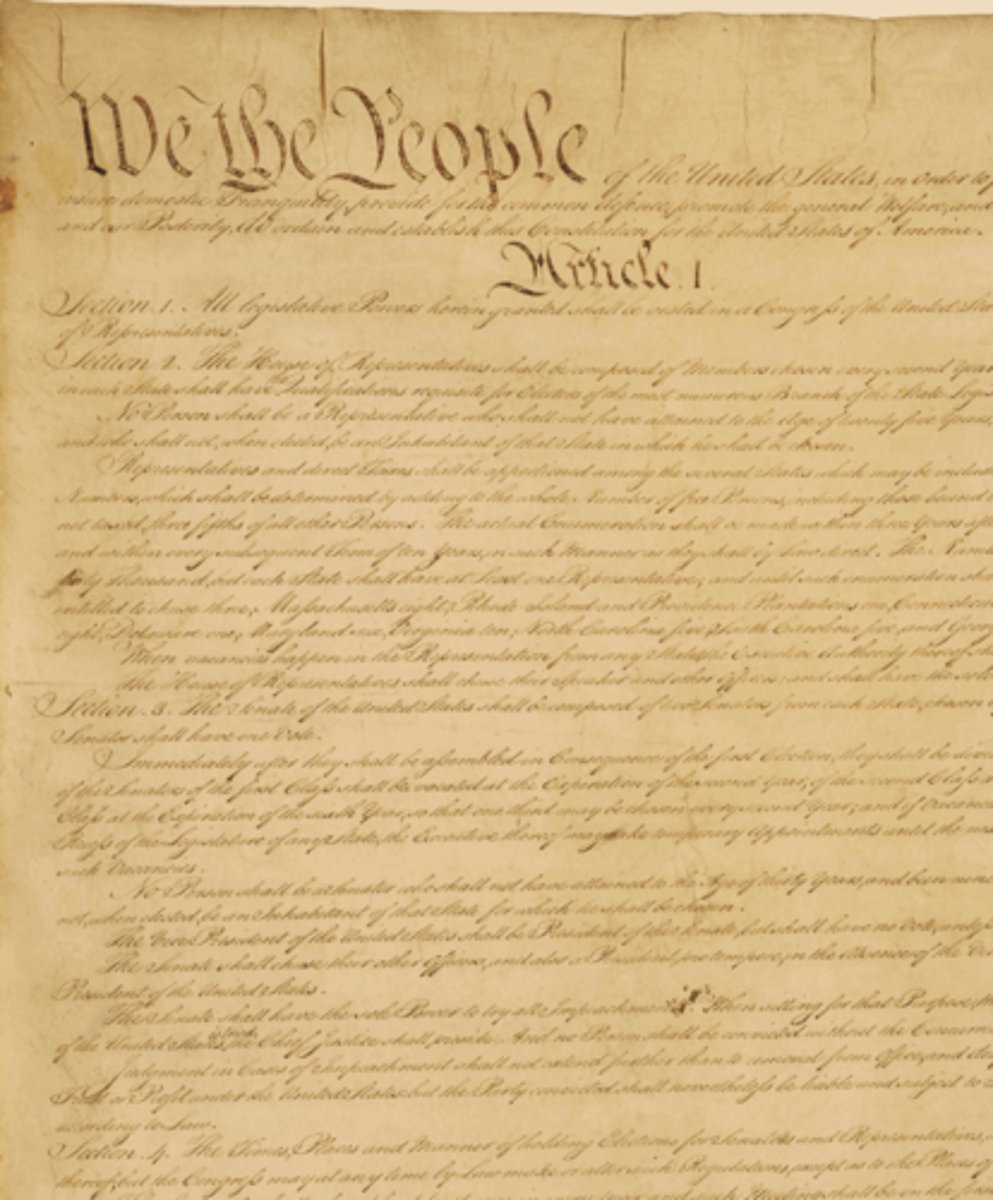 We the People of the United States, in Order to
insure domestic Tranquility, provide for the common defence, promote the general Welfare, and
and our Posterity, do ordain and establish this Constitution for the United States of America.
Article. I.
Section. 1. All legislative Powers herein granted shall be vested in a Congress of the United
of Representatives.
Section. 2. The House of Representatives shall be composed of Members chosen every second Year
in each State shall have the Qualifications requisite for Electors of the most numerous Branch of the State
No Person shall be a Representative who shall not have attained to the Age of twenty five Years,
and who shall not, when elected, be an Inhabitant of that State in which he shall be chosen.
Representatives and direct Taxes shall be apportioned among the several States which may be
Numbers, which shall be determined by adding to the whole Number of free Persons, including those bound
not taxed, three fifths of all other Persons. The actual Enumeration shall be made within three Years
and within every subsequent Term of ten Years, in such Manner as they shall by Law direct. The
thirty Thousand, but each State shall have at Least one Representative; and until such enumeration
entitled to chuse three, Massachusetts eight, Rhode Island and Providence Plantations one,
eight, Delaware one, Maryland six, Virginia ten, North Carolina five, South Carolina five, and
When vacancies happen in the Representation from any State, the Executive Authority thereof
The House of Representatives shall chuse their Speaker and other Officers; and shall have the
Section. 3. The Senate of the United States shall be composed of two Senators from each State, chosen
Senator shall have one Vote.
Immediately after they shall be assembled in Consequence of the first Election, they shall be
of the Senators of the first Class shall be vacated at the Expiration of the second Year, of the second Class
Class at the Expiration of the sixth Year, so that one third may be chosen every second Year; and if
Recess of the Legislature of any State, the Executive thereof may make temporary Appointments until the
such Vacancies.
No Person shall be a Senator who shall not have attained to the Age of thirty Years, and been
not, when elected, be an Inhabitant of that State for which he shall be chosen.
The Vice President of the United States shall be President of the Senate, but shall have no Vote,
The Senate shall chuse their other Officers, and also a President pro tempore, in the Absence of the
President of the United States.
The Senate shall have the sole Power to try all Impeachments. When sitting for that Purpose,
of the United States, the Chief Justice shall preside: And no Person shall be convicted without the
Judgment in Cases of Impeachment shall not extend further than to removal from Office, and
Trust or Profit under the United States: but the Party convicted shall nevertheless be liable and subject to
according to Law.
Section. 4. The Times, Places and Manner of holding Elections for Senators and Representatives,
thereof; but the Congress may at any time by Law make or alter such Regulations, except as to the Places of